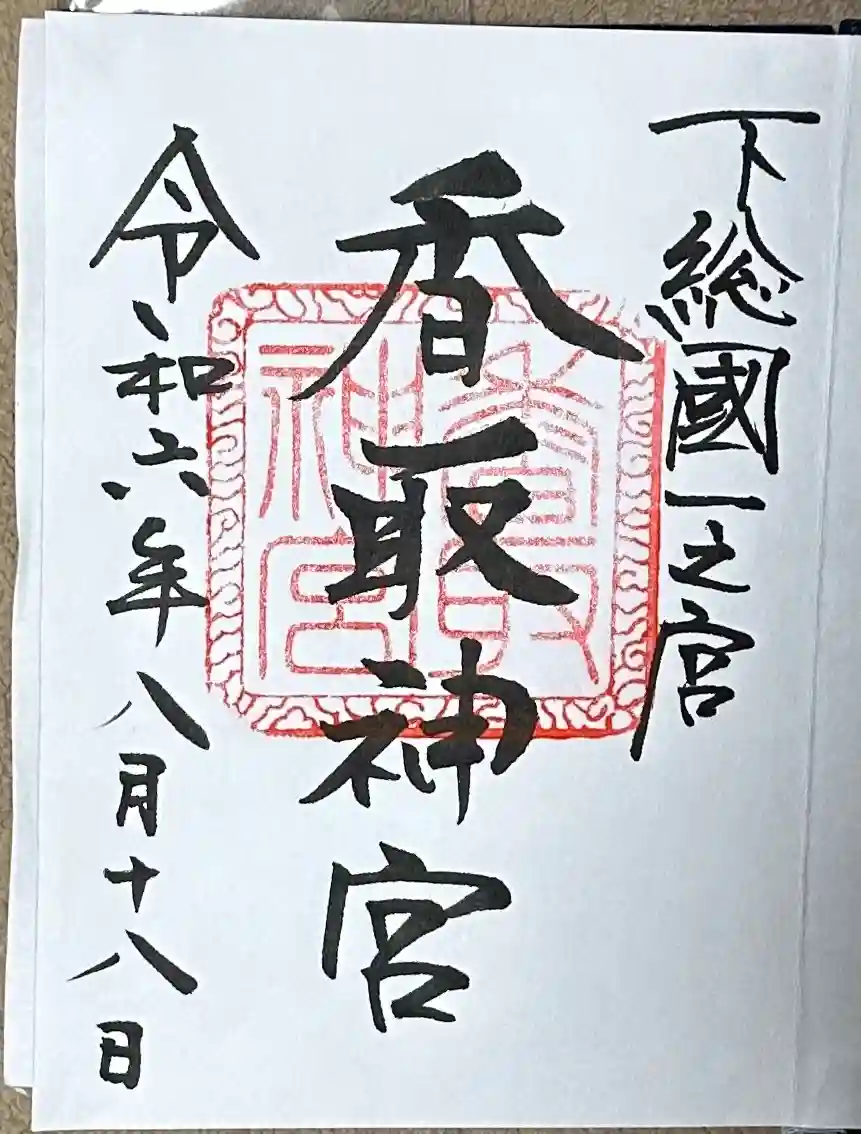 下総國一之宮
香取神宮
香取神宮
令和六年八月十八日